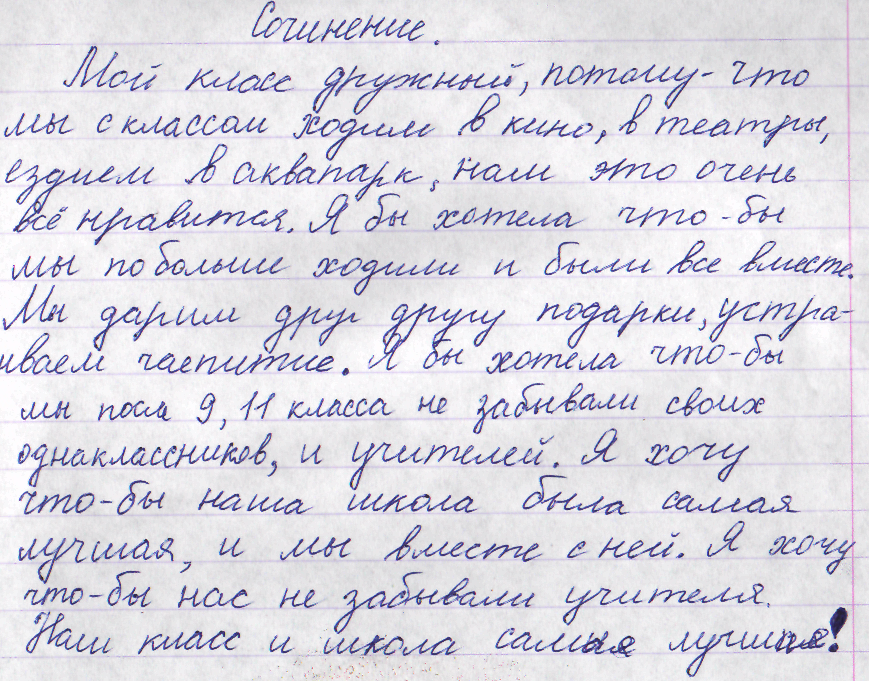 Сочинение.
Мой класс дружный, потому-что
мы с классом ходим в кино, в театры,
ездием в аквапарк, нам это очень
всё нравится. Я бы хотела что-бы
мы побольше ходили и были все вместе.
Мы дарим друг другу подарки, устра-
иваем чаепитие. Я бы хотела что-бы
мы посл 9, 11 класса не забывали своих
однаклассников, и учителей. Я хочу
что-бы наша школа была самая
лучшая, и мы вместе с ней. Я хочу
что-бы нас не забывали учителя.
Наш класс и школа самые лучшие!